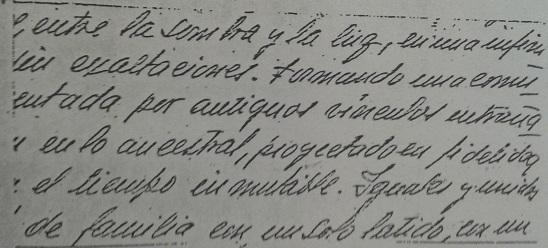 entre la sombra y la luz, en una infini
sin exaltaciones. Formando una comu
entada por antiguos vínculos entraña
en lo ancestral, proyectado en fidelidad
el tiempo inmutable. Iguales y unidos
de familia con un solo latido, en un